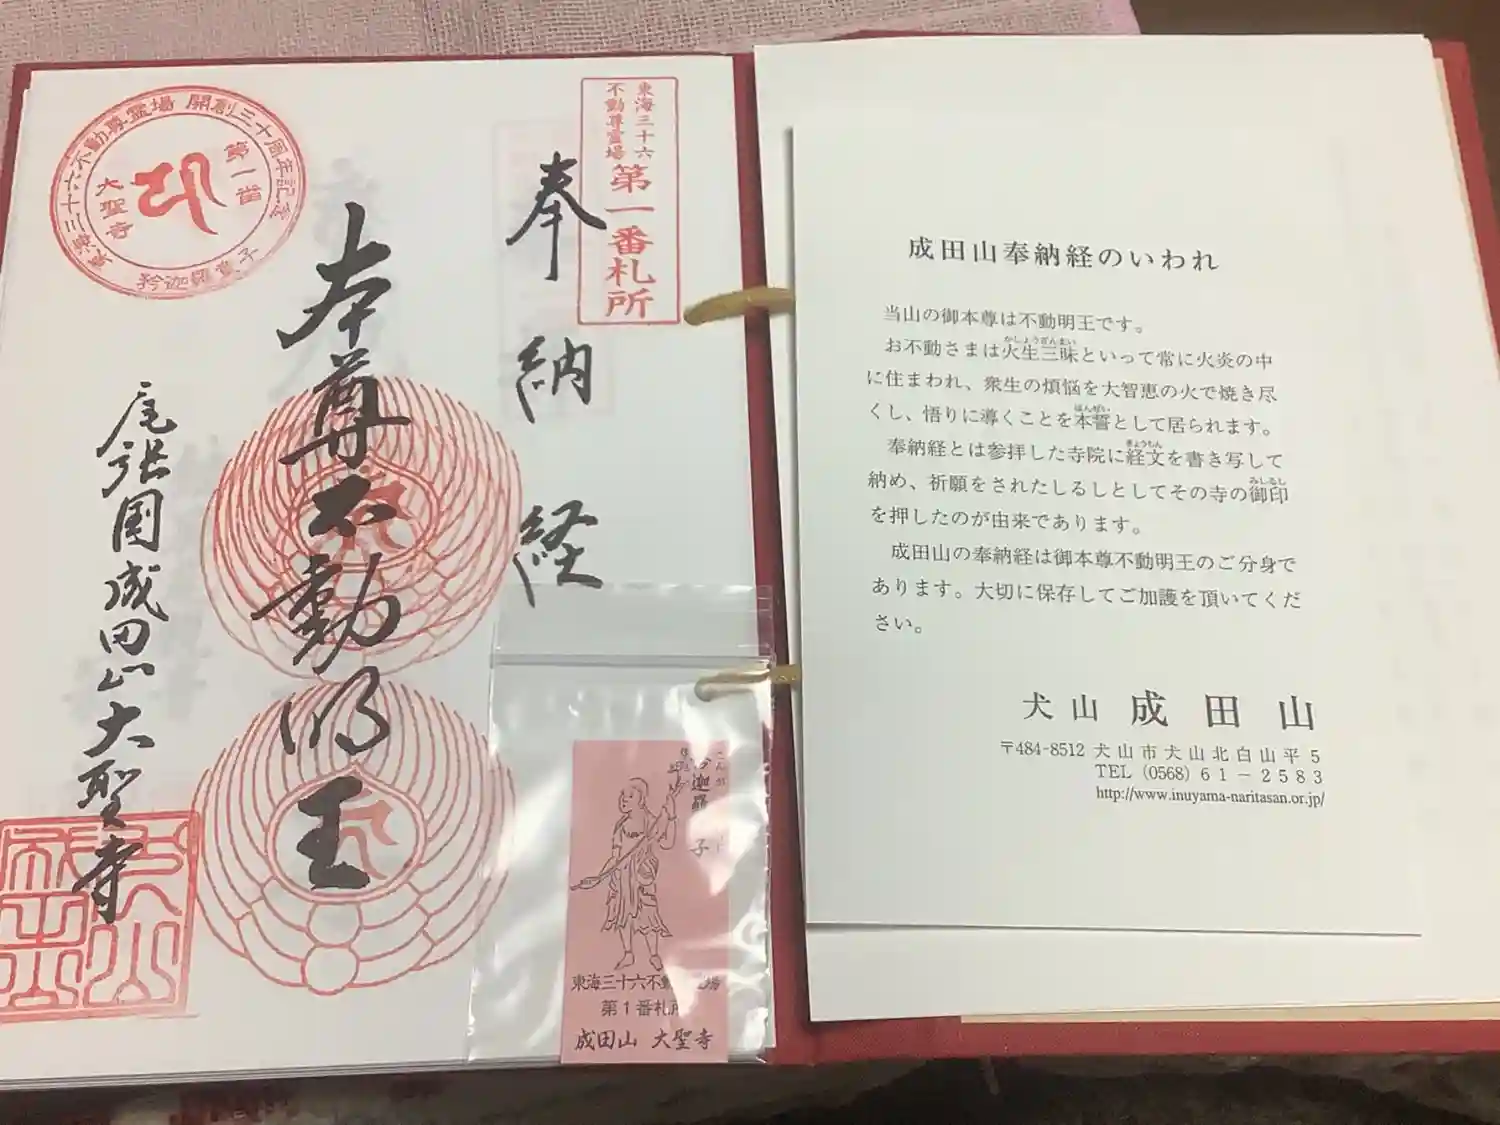 東海三十六不動尊霊場 開創三十周年記念
第一福
大聖寺
矜迦羅童子
東海三十六
不動尊霊場
第一番札所
奉納経
本尊不動明王
尾張国成田山大聖寺
東海三十六不動
第1番札所
成田山 大聖寺
成田山奉納経のいわれ
当山の御本尊は不動明王です。
かしょうざんまい
お不動さまは火生三昧といって常に火炎の中
に住まわれ、衆生の煩悩を大智恵の火で焼き尽
ほんぜい
くし、悟りに導くことを本誓として居られます。
きょうもん
奉納経とは参拝した寺院に経文を書き写して
みしるし
納め、祈願をされたしるしとしてその寺の御印
を押したのが由来であります。
成田山の奉納経は御本尊不動明王のご分身で
あります。大切に保存してご加護を頂いてくだ
さい。
犬山 成田山
〒484-8512 犬山市犬山北白山平5
TEL (0568) 61-2583
http://www.inuyama-naritasan.or.jp/